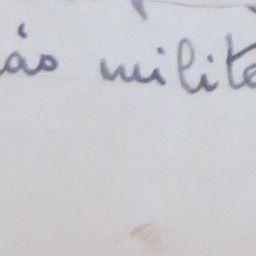 ás milité